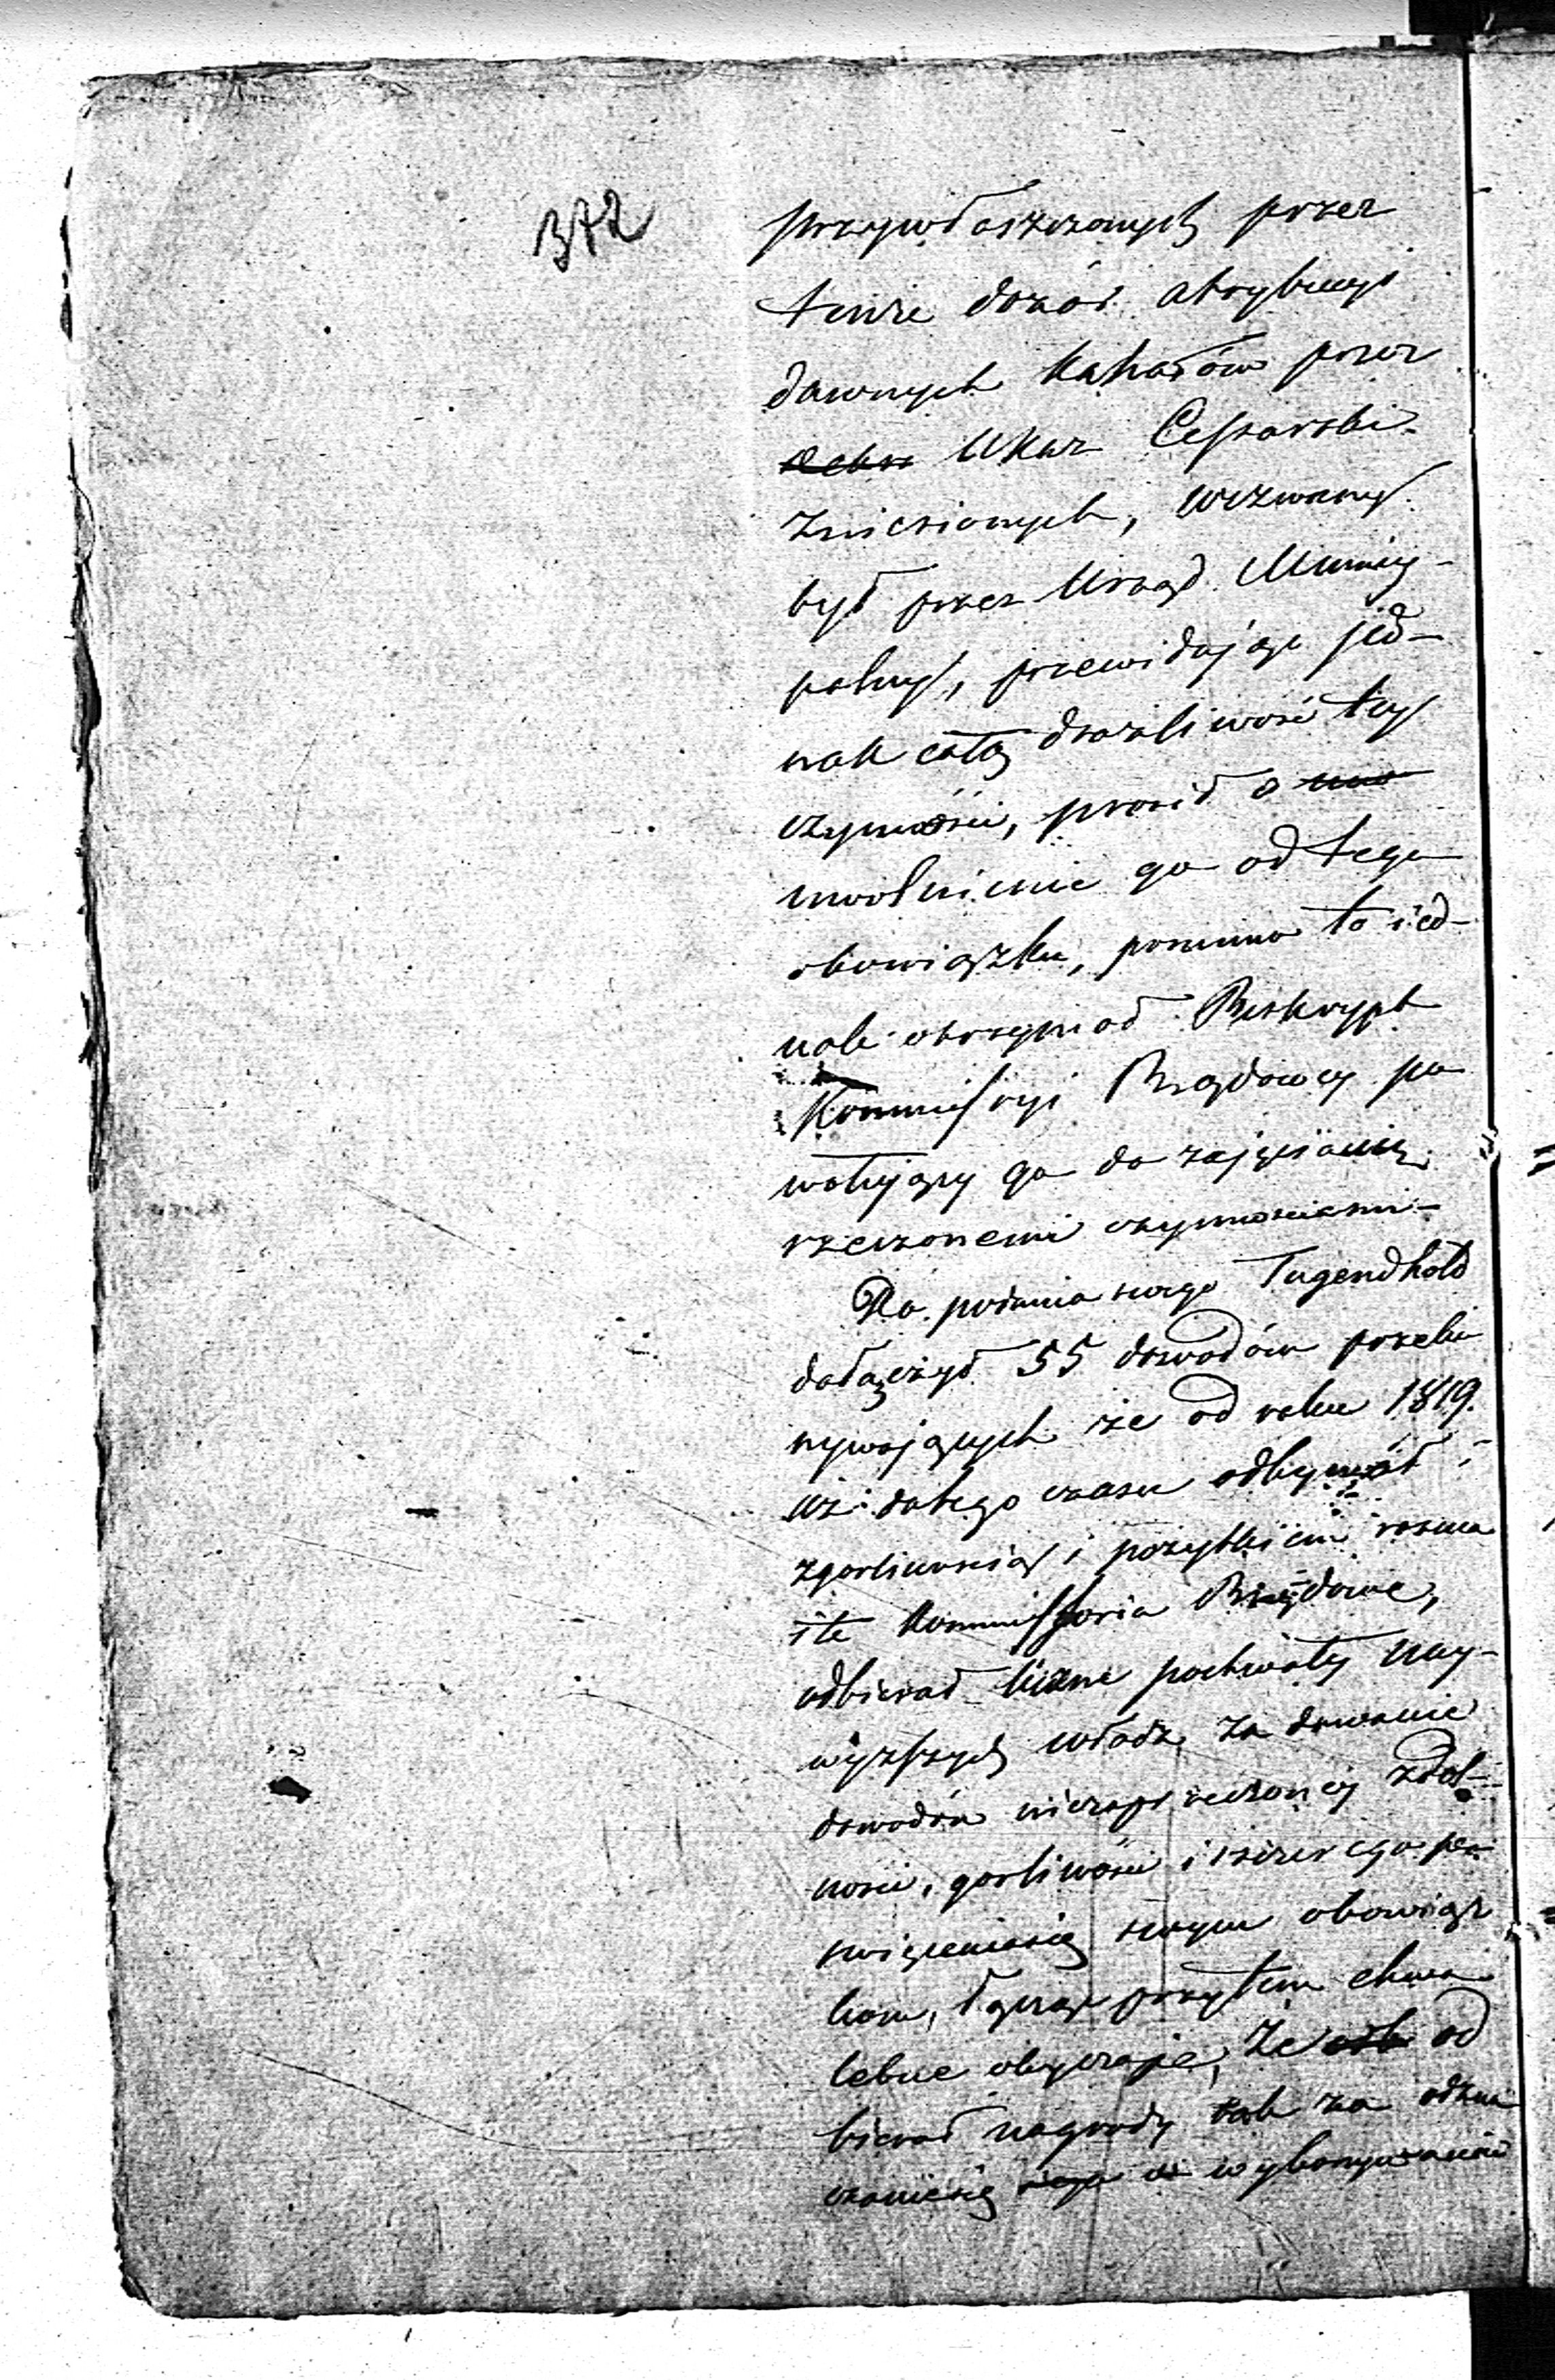 372
przywłaszczonych przez
tenże dozór atrybucyi
dawnych Kahałów przez
Ukaz Cesarski
zniesionych, wezwany
był przez Urząd Municy-
palny, przewidując jed-
nak całą drażliwość tey
czynności, prosił o
uwolnienie go od tego
obowiązku, pomimo to ied-
nak otrzymał Reskrypt
Kommissyi Rządowey po
wołujący go do zajęcia się
rzeczonemi czynnościami –
Do podania swego Tugendhold
dołączył 55 dowodów przeko
nywających że od roku 1819.
aż do tego czasu odbywał
z gorliwością i pożytkiem rozma
ite Kommissoria Rządowe,
odbierał liczne pochwały nay-
wyższych władz za dawanie
dowodów niezaprzeczoney zdol-
ności, gorliwości i szczerego po
święcenia się swym obowiąz
kom, łącząc przytem chwa
lebne obyczaje, że od
bierał nagrody tak za odzna
czanie się w wykonywaniu